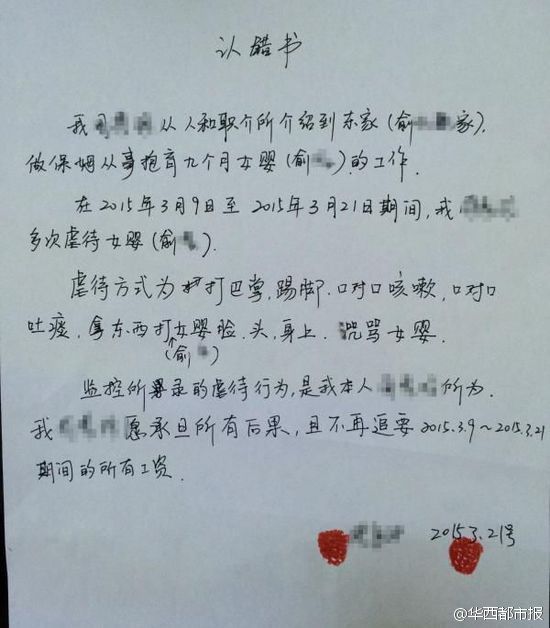 认错书
我司 从人和职介所介绍到东家(俞 家).
做保姆从事抱育九个月女婴(俞 )的工作.
在2015年3月9日至2015年3月21日期间,我
多次虐待女婴(俞 ).
虐待方式为打巴掌,踢脚.口对口咳嗽,口对口
吐痰,拿东西打女婴脸.头,身上.咒骂女婴.
(俞 )
监控所录的虐待行为,是我本人 所为.
我 愿承旦所有后果,且不再追要2015.3.9~2015.3.21
期间的所有工资.
2015.3.21号
@华西都市报